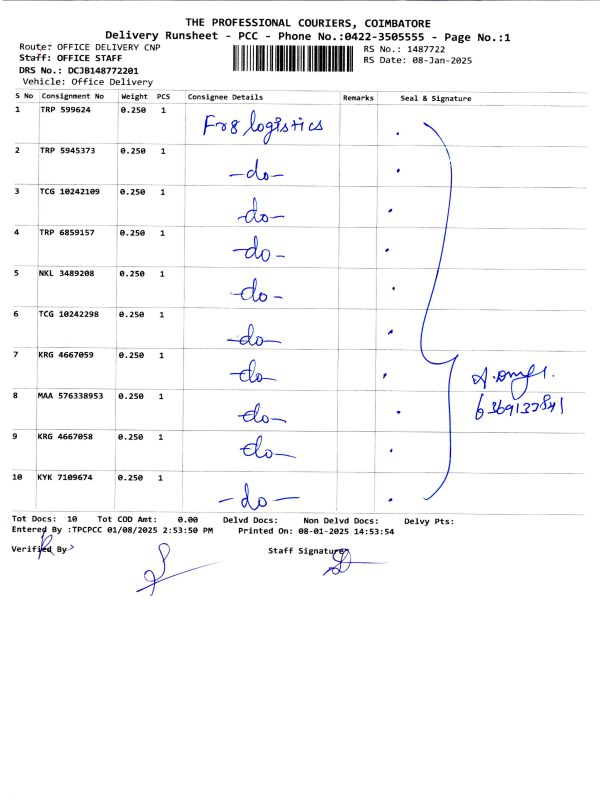 THE PROFESSIONAL COURIERS, COIMBATORE
Delivery Runsheet - PCC - Phone No.:0422-3505555 - Page No.:1
Route: OFFICE DELIVERY CNP
Staff: OFFICE STAFF
DRS No.: DCJB148772201
Vehicle: Office Delivery
RS No.: 1487722
RS Date: 08-Jan-2025
S No Consignment No Weight PCS Consignee Details Remarks Seal & Signature
1 TRP 599624 0.250 1 Fr8 logistics
2 TRP 5945373 0.250 1 -do-
3 TCG 10242109 0.250 1 -do-
4 TRP 6859157 0.250 1 -do-
5 NKL 3489208 0.250 1 -do-
6 TCG 10242298 0.250 1 -do-
7 KRG 4667059 0.250 1 -do-
8 MAA 576338953 0.250 1 -do-
9 KRG 4667058 0.250 1 -do-
10 KYK 7109674 0.250 1 -do-
Tot Docs: 10 Tot COD Amt: 0.00 Delvd Docs: Non Delvd Docs: Delvy Pts:
Entered By :TPCPCC 01/08/2025 2:53:50 PM Printed On: 08-01-2025 14:53:54
Verified By Staff Signature